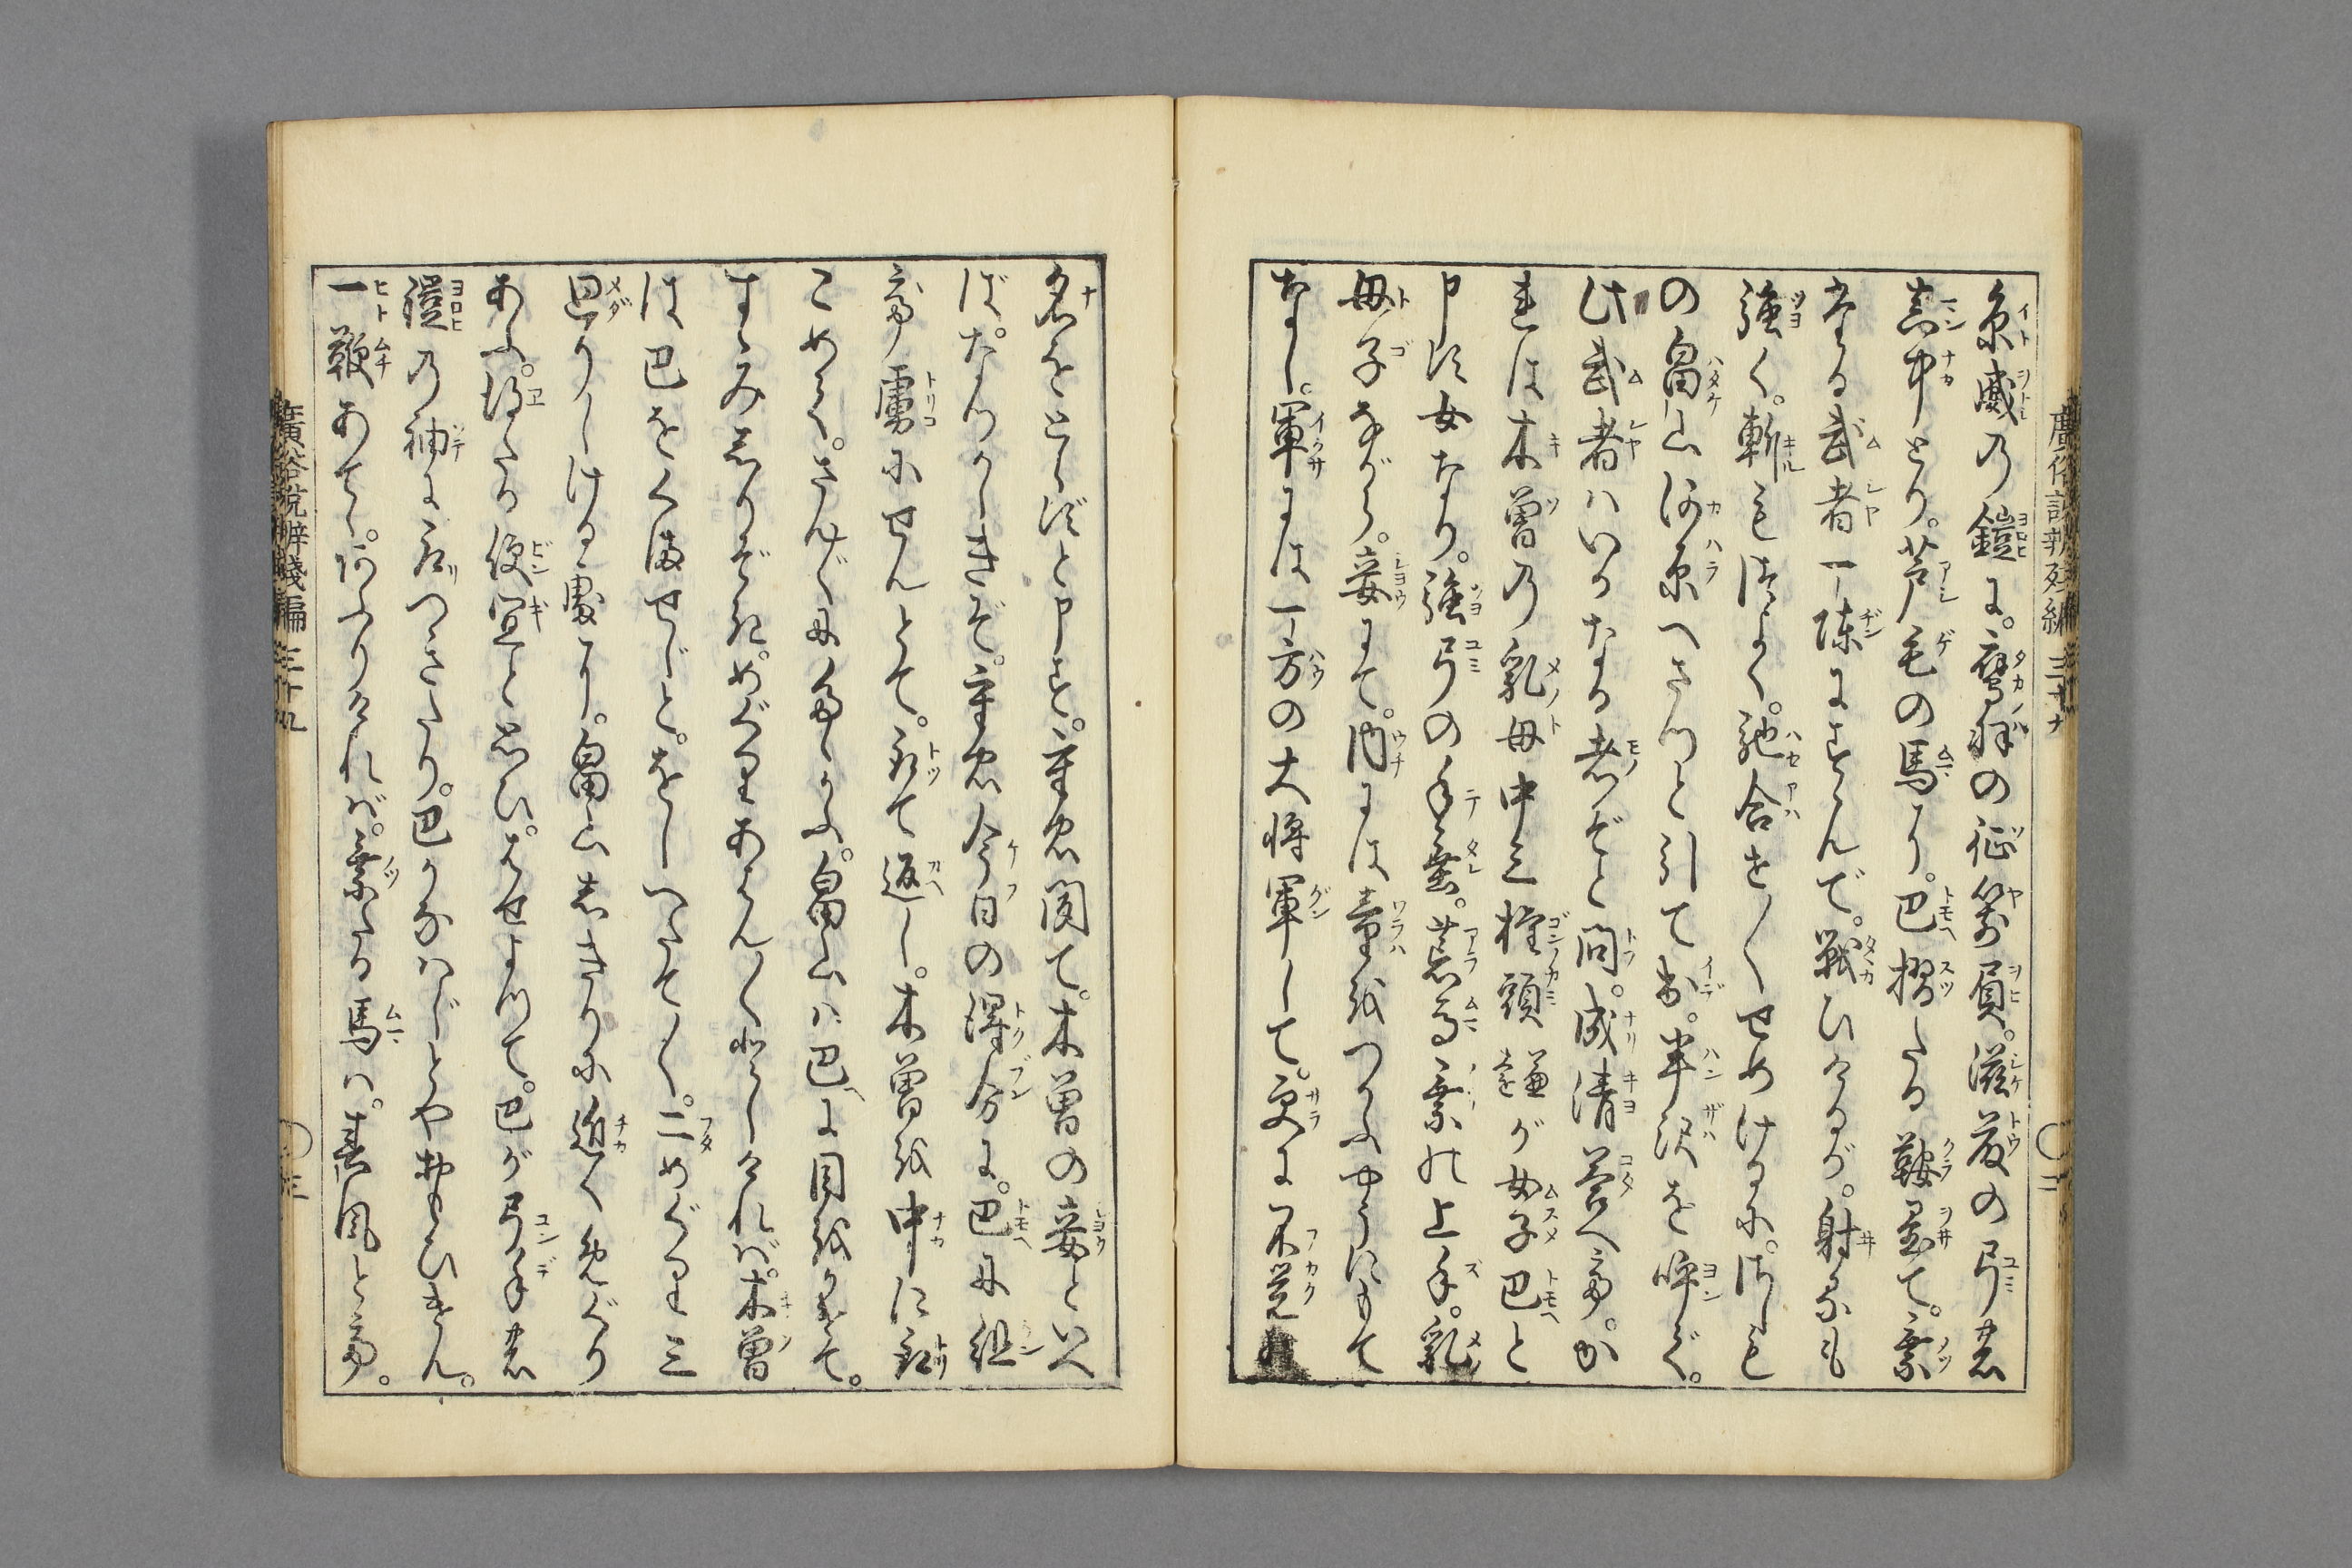 廣俗説弁残編 三十九
糸威の鎧に。鷹羽の征箭負。滋藤の弓の
真中とり。芦毛の馬に。巴摺たる鞍置て。乗
たる武者一陳にすゝんで。戦ひけるが。射るも
強く。斬もつよく。馳合せ〳〵せめけるに。
の畠山河原へさつと引て出。半沢を呼で。
此武者はいかなる者ぞと問。成清答へて。か
れは木曽の乳母中三権頭
が女子巴と
申す女なり。強弓の手垂。荒馬乗の上手。乳
母子ながら。妾にて。内には童をつかふやうにもて
なし。軍には一方の大将軍して。更に不覚の
名をとらずと申す。重忠聞て。木曽の妾といへ
ばなつかしきぞ。重忠今日の得分に。巴に組
で虜にせんとて。取て返し。木曽を中に取
こめて。さんざんにたゝかふ。畠山は巴に目をかけて。
すゝみ
めぐりあはん〳〵としければ。木曽
は巴をくませじと。をしへだて〳〵。二めぐり三
廻りしける処に。畠山
近くめぐり
あふ。得たる便宜と思ひ。はせよつて。巴が弓手の
鎧の袖に取つきたり。巴かなはじとや おもひけん。
一鞭あてゝ。あふりければ。乗たる馬は。春風とて。
廣俗説辨残編 三十九